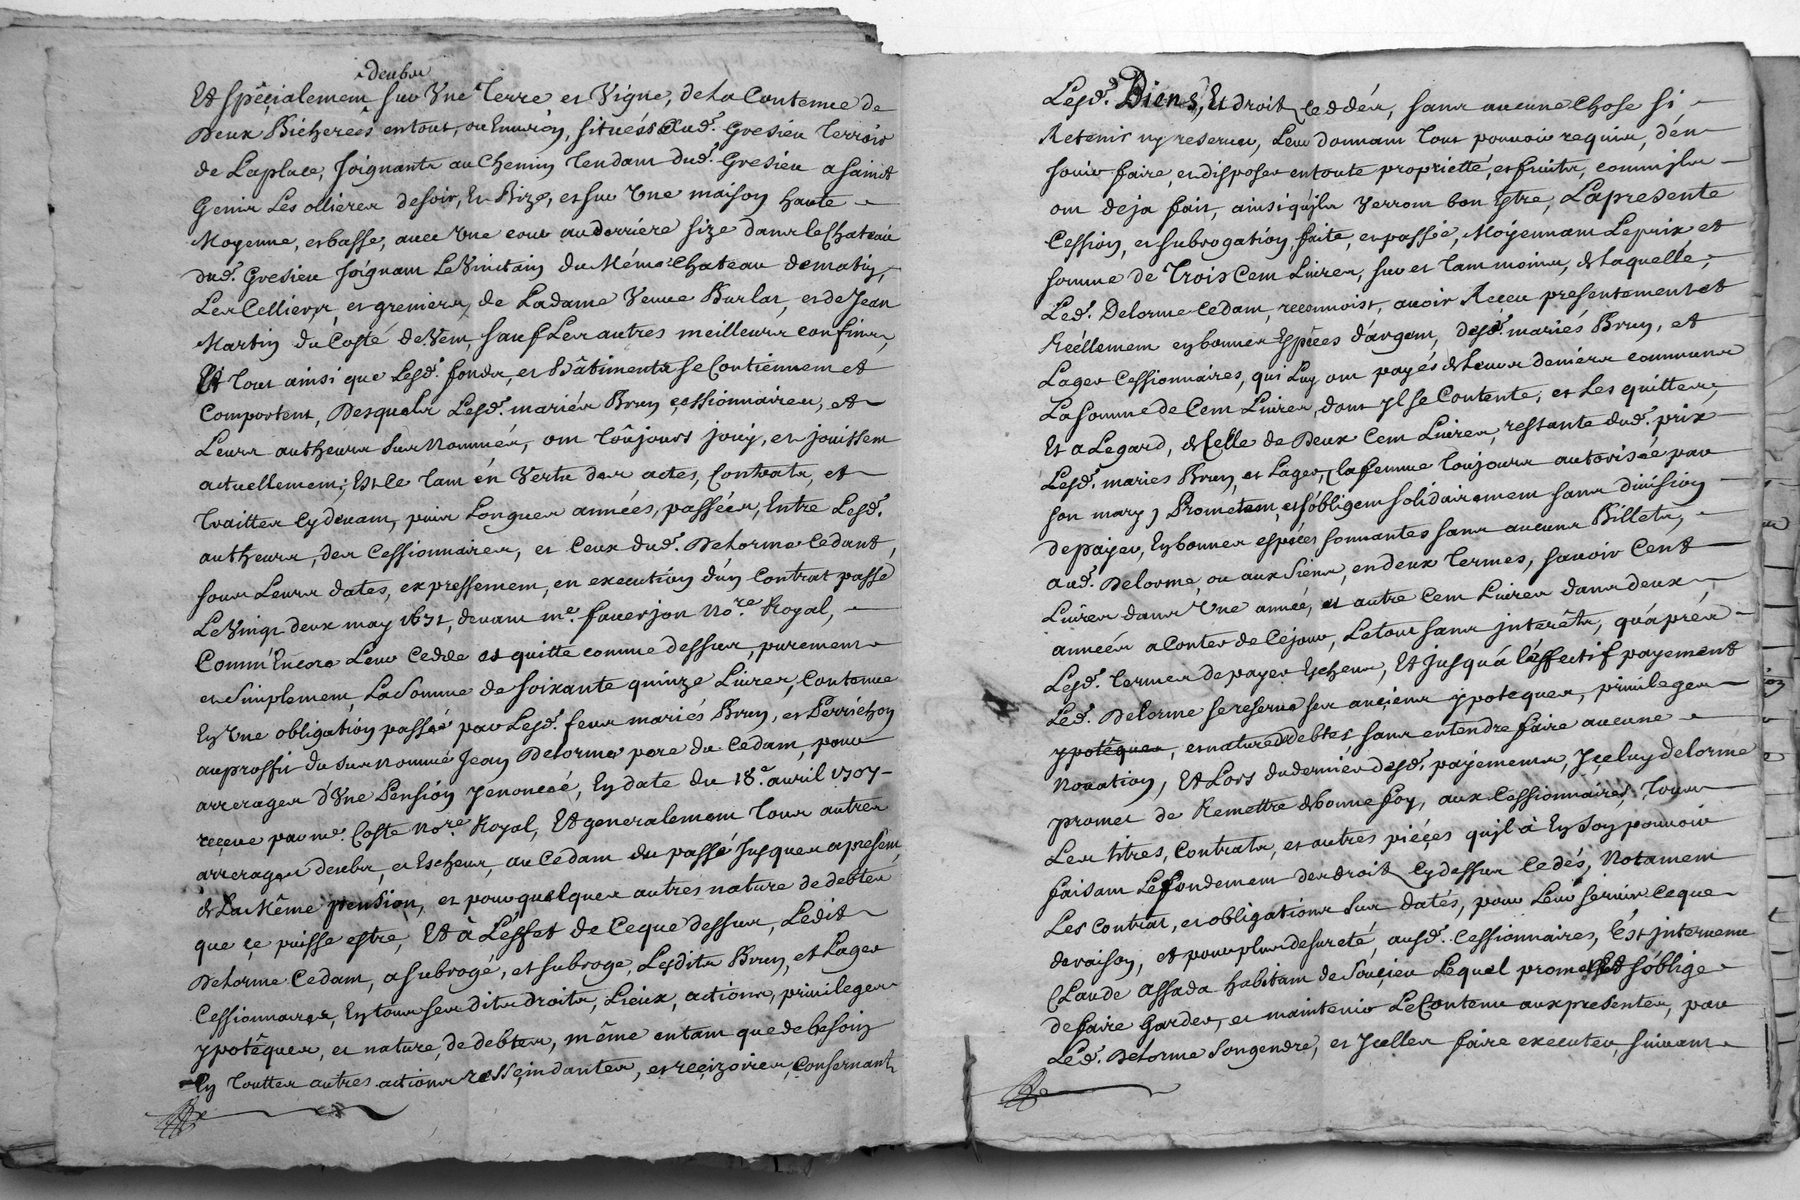 deubs
Et spécialement sur Une Terre et Vigne, de La Contenue de
Deux Bicherées entout, ou Environ, situés Aud.t Gresieu Terroir
de Laplace, Joignants au Chemin Tendant dud.t Gresieu a saint
Genis Les ollieres de soir, Et Bize, et sur Une maison haute
Moyenne, et basse, avec Une cour au derriere size dans le Chateau
dud.t Gresieu Joignant Le Vinctain du Même Chateau de matin,
Les Celliers, et greniers de La dame Veuve Burlat, et de Jean
Martin du Costé de Vent, sauf Les autres meilleurs confins,
Et Tout ainsi que Lesd.t fonds, et Bâtiments se Contiennent et
Comportent, Desquels Lesd.t mariés Brun cessionnaires, et
Leurs autheurs sus Nommés, ont Toûjours jouy, et jouissent
actuellement; Est Ce Tant en Vertu des actes, Contrats, et
Traittes Cy devant, puis Longues années, passées, Entre Lesd.t
autheurs, des Cessionnaires, et Ceux dud.t Delorme Cedant,
sous Leurs dates, expressement, en execution d'un Contrat passé
Le Vingt deux may 1671, devant m.e faverjon No.re Royal,
Comm'Encore Leur Cedde et quitte comme dessus, purement
et simplement, La Somme de soixante quinze Livres, Contenue
En Une obligation passée par Lesd.t feus mariés Brun, et Perrichon
au proffit du sus nommé Jean Delorme pere du Cedant, pour
arrerages d'Une Pension y enoncée, En date du 18.e avril 1707
reçeue par me. Coste No.re Royal, Et generalement Tous autres
arrerages deubs, et Escheus, au Cedant du passé Jusques a present,
de La Même pension, et pour quelques autres nature de debtes
que ce puisse estre, Et à L'effet de Ce que dessus, Ledit
Delorme Cedant, a subrogé, et subroge, Lesdits Brun, et Lager
Cessionnaires, En tous ses dits droits, Lieux, actions, privileges
ypotêques, et nature, de debtes, même entant que de besoin
En Touttes autres actions resscindantes, et recizoires, Consernants
Lesd.t Biens, Et droits Ceddés, sans aucune Chose s'i
Retenir ny reserver, Leur donnant Tout pouvoir requis, d'en
jouir faire, et disposer entoute proprietté, et fruits, comm'ils
ont deja fait, ainsi qu'ils Verront bon Estre, La presente
Cession, et subrogation, faite, et passée, Moyennant Le prix et
somme de Trois Cent Livres, sur et Tant moins, de Laquelle,
Led.t Delorme Cedant, reconnoist, avoir Receu presentement et
Réellement en bonnes Espèces d'argent, desd.t mariés Brun, et
Lager Cessionnaires, qui Luy ont payés de Leurs deniers communs
La Somme de Cent Livres, dont Il se Contente, et Les quittes,
Et a L'egard, de Celle de Deux Cent Livres, restante dud.t prix
Lesd.t maries Brun, et Lager, la femme Toujours autorisée par
son mary, Promettent, et s'obligent solidairement sans division
de payer, En bonnes espèces sonnantes sans aucuns Billets,
aud.t Delorme, ou aux Siens, en deux Termes, savoir Cent
Livres dans Une année, et autre Cent Livres dans deux
années a Conter de Ce jour, Le tout sans intérêts, qu'après
Lesd.t Termes de payer Escheus, Et Jusqu'à L'effectif payement
Led.t Delorme se reserve ses anciens ypoteques, privileges
ypotêques, et nature de debtes sans entendre faire aucune
Novation, Et Lors du dernier desd.t payements, Iceluy delorme
promet de Remettre de bonne foy, aux Cessionnaires, Tous
Les titres, Contrats, et autres pièces qu'il à En son pouvoir
faisant Le fondement des droits Cy dessus Cedés, Notament
Les Contrat, et obligations sus datés, pour Leur servir Ce que
de raison, et pour plus de sureté, ausd.t Cessionnaires, Est intervenu
Claude assada habitant de Soucieu Lequel promet et s'oblige
de faire Garder, et maintenir Le Contenu aux presentes, par
Led.t Delorme son gendre, et Icelles faire executer, suivant